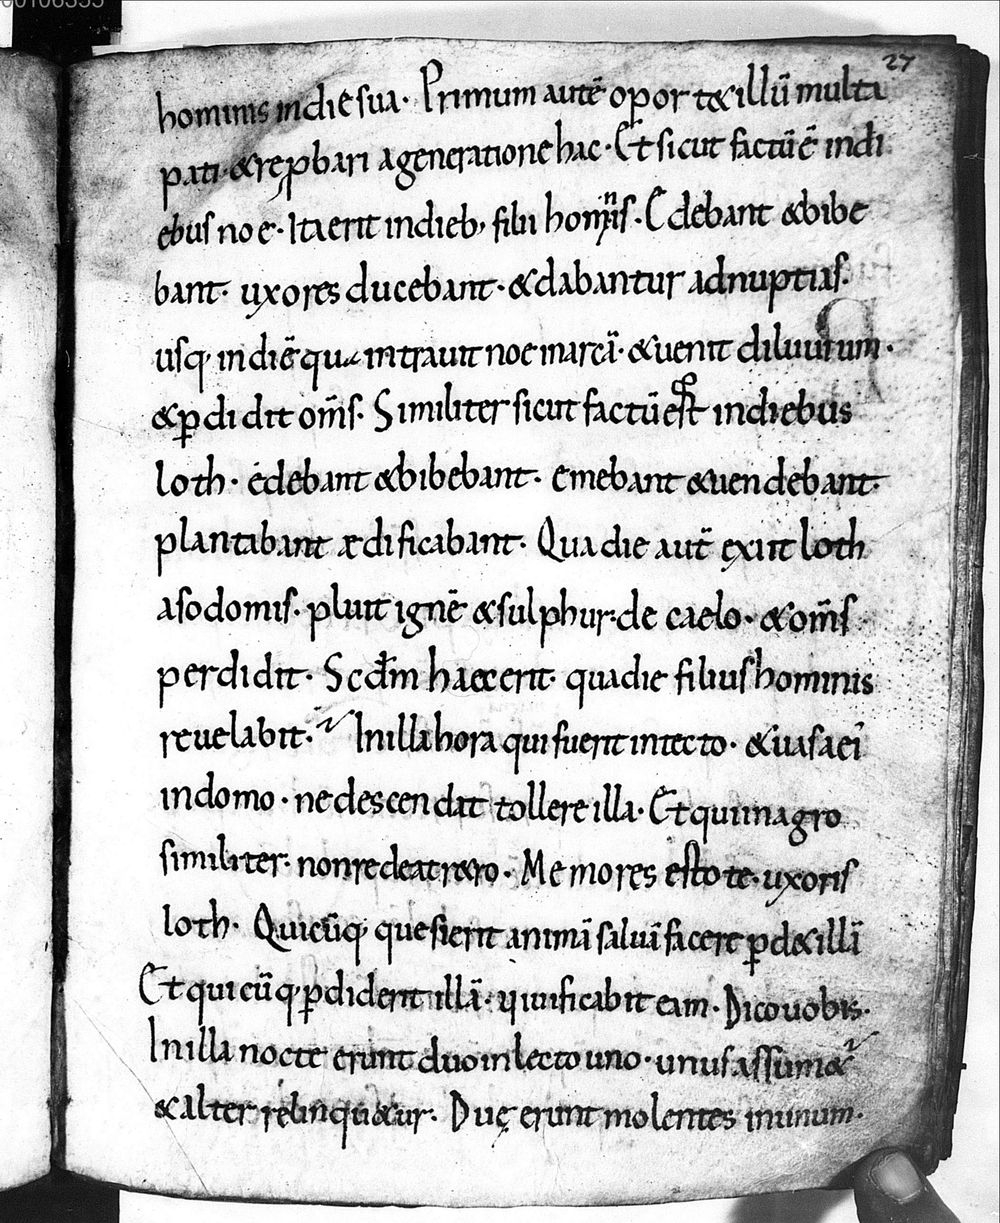 00106355
27
hominis in die sua. Primum autē oportet illū multa
pati. & rep̱bari a generatione hac. Et sicut factū ē in di
ebus noe. Ita erit in dieb; filii hominis. Edebant & bibe
bant. uxores ducebant. & dabantur ad nuptias.
usq; in diē qua intrauit noe in arcā. & uenit diluuium.
& ꝑdidit om̄s. Similiter sicut factū est in diebus
loth. edebant & bibebant. emebant & uendebant.
plantabant ædificabant. Qua die aut̄ exiit loth
a sodomis. pluit ignē & sulphur. de caelo. & om̄s
perdidit. Scdm̄ haec erit. qua die filius hominis
reuelabit. In illa hora qui fuerit in tecto. & uasa ei'
in domo. ne descendat tollere illa. Et qui in agro
similiter. non redeat retro. Memores estote. uxoris
loth. Quicūq; quesierit animā saluā facere ꝑd& illā
Et quicūq; ꝑdiderit illā. uiuificabit eam. Dico uobis.
In illa nocte erunt duo in lecto uno. unus assum&
& alter relinqu&ur. Duę erunt molentes in unum.